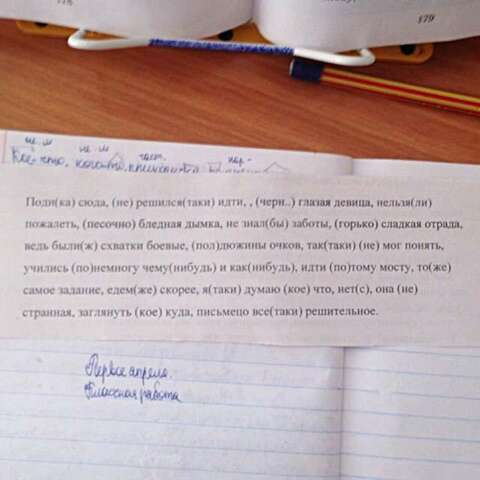 179
не-м не-м част. нар-
Кое-что, когда-то,
Поди(ка) сюда, (не) решился(таки) идти, , (черн..) глазая девица, нельзя(ли)
пожалеть, (песочно) бледная дымка, не знал(бы) заботы, (горько) сладкая отрада,
ведь были(ж) схватки боевые, (пол)дюжины очков, так(таки) (не) мог понять,
учились (по)немногу чему(нибудь) и как(нибудь), идти (по)тому мосту, то(же)
самое задание, едем(же) скорее, я(таки) думаю (кое) что, нет(с), она (не)
странная, заглянуть (кое) куда, письмецо все(таки) решительное.
Первое апреля.
Классная работа